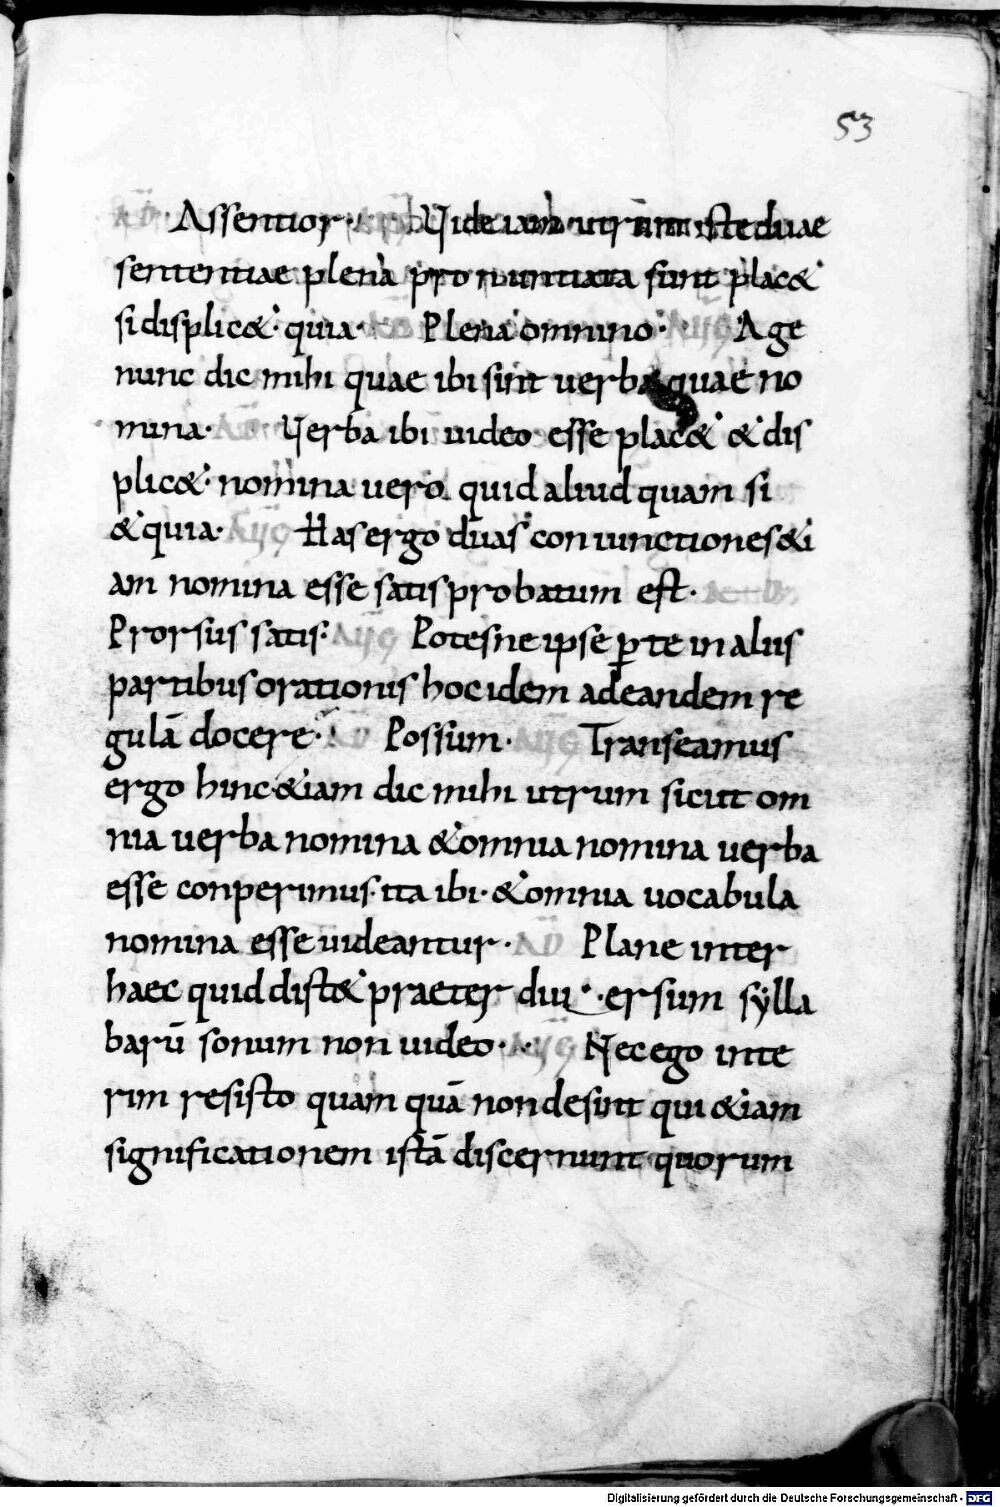 53
AD· Assentior· AUG Vide iam utrum iste duae
sententiae plena pronuntiata sunt plac&
si displic&· quia· AD Plena omnino· AUG Age
nunc dic mihi quae ibi sint verba quae no
mina· AD Verba ibi video esse plac& & dis
plic&· nomina vero quid aliud quam si
& quia· AUG Has ergo duas coniunctiones &i
am nomina esse satis probatum est· AD
Prorsus satis· AUG Potesne ipse ꝑ te in aliis
partibus orationis hoc idem ad eandem re
gulā docere· AD Possum· AUG Transeamus
ergo hinc· &iam dic mihi utrum sicut om
nia verba nomina & omnia nomina verba
esse conperimus· ita ibi· & omnia vocabula
nomina esse videantur· AD Plane inter
haec quid dist& praeter diu·ersum sylla
barū sonum non video· AUG Nec ego inte
rim resisto quam quā non desint qui &iam
significationem istā discernunt quorum
Digitalisierung gefördert durch die Deutsche Forschungsgemeinschaft - DFG